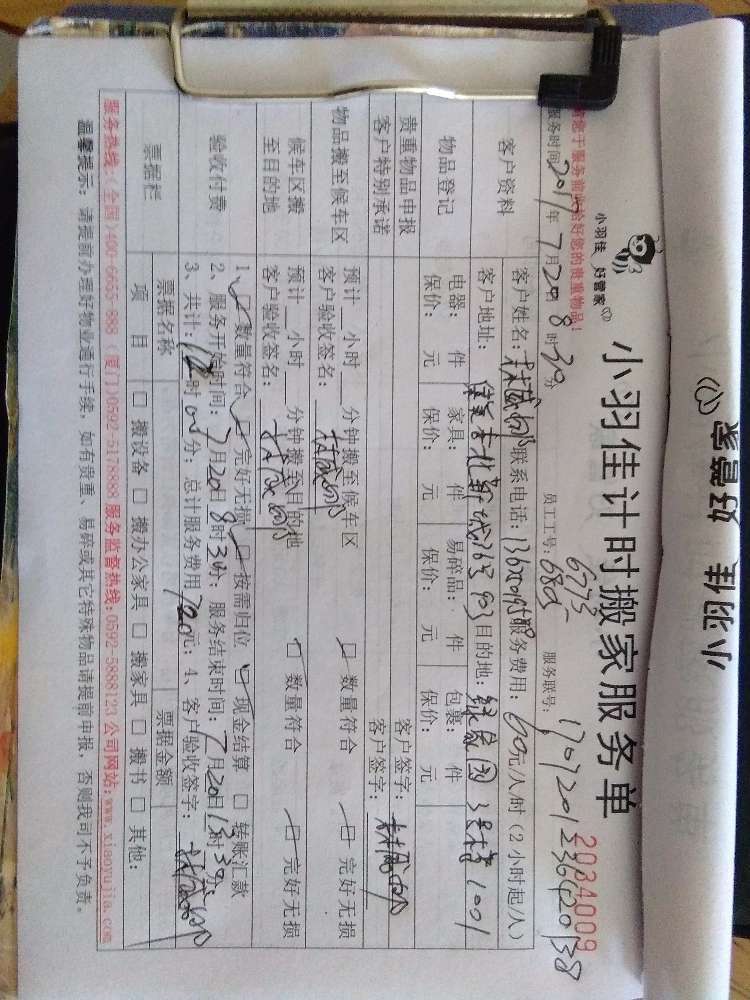 家管好 佳羽小
小羽佳 好管家
小羽佳计时搬家服务单
2034009
请您于服务前收恰好您的贵重物品！
员工工号： 服务联号：
服务时间：2017年7月20日8时30分
客户资料
客户姓名： 联系电话： 服务费用：60元/人/时（2小时起/人）
客户地址： 目的地：
物品登记
电器： 件 家具： 件 易碎品： 件 包裹： 件
保价： 元 保价： 元 保价： 元 保价： 元
贵重物品申报 客户签字：
客户特别承诺 客户签字：
物品搬至候车区
预计__小时__分钟搬至候车区 数量符合 完好无损
客户验收签名：
候车区搬至目的地
预计__小时__分钟搬至目的地 数量符合 完好无损
客户验收签名：
验收付费
1、数量符合 完好无损 按需归位 现金结算 转账汇款
2、服务开始时间：7月20日8时30分；服务结束时间：7月20日 时30分；
3、共计： 时 分；总计服务费用720元；4、客户验收签字：
票据栏
票据名称 票据金额
项目 搬设备 搬办公家具 搬家具 搬书 其他：
服务热线：（全国）400-6655-888 （厦门）0592-5178888 服务监督热线：0592-5888123 公司网站：www.xiaoyujia.com
温馨提示：请提前办理好物业通行手续，如有贵重、易碎或其它特殊物品请提前申报，否则我司不予负责。